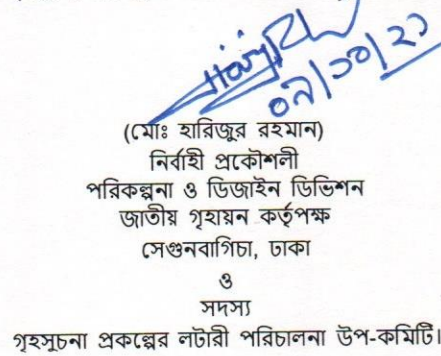 ০৭/১০/২১
(মোঃ হারিজুর রহমান)
নির্বাহী প্রকৌশলী
পরিকল্পনা ও ডিজাইন ডিভিশন
জাতীয় গৃহায়ন কর্তৃপক্ষ
সেগুনবাগিচা, ঢাকা
ও
সদস্য
গৃহসূচনা প্রকল্পের লটারী পরিচালনা উপ-কমিটি।